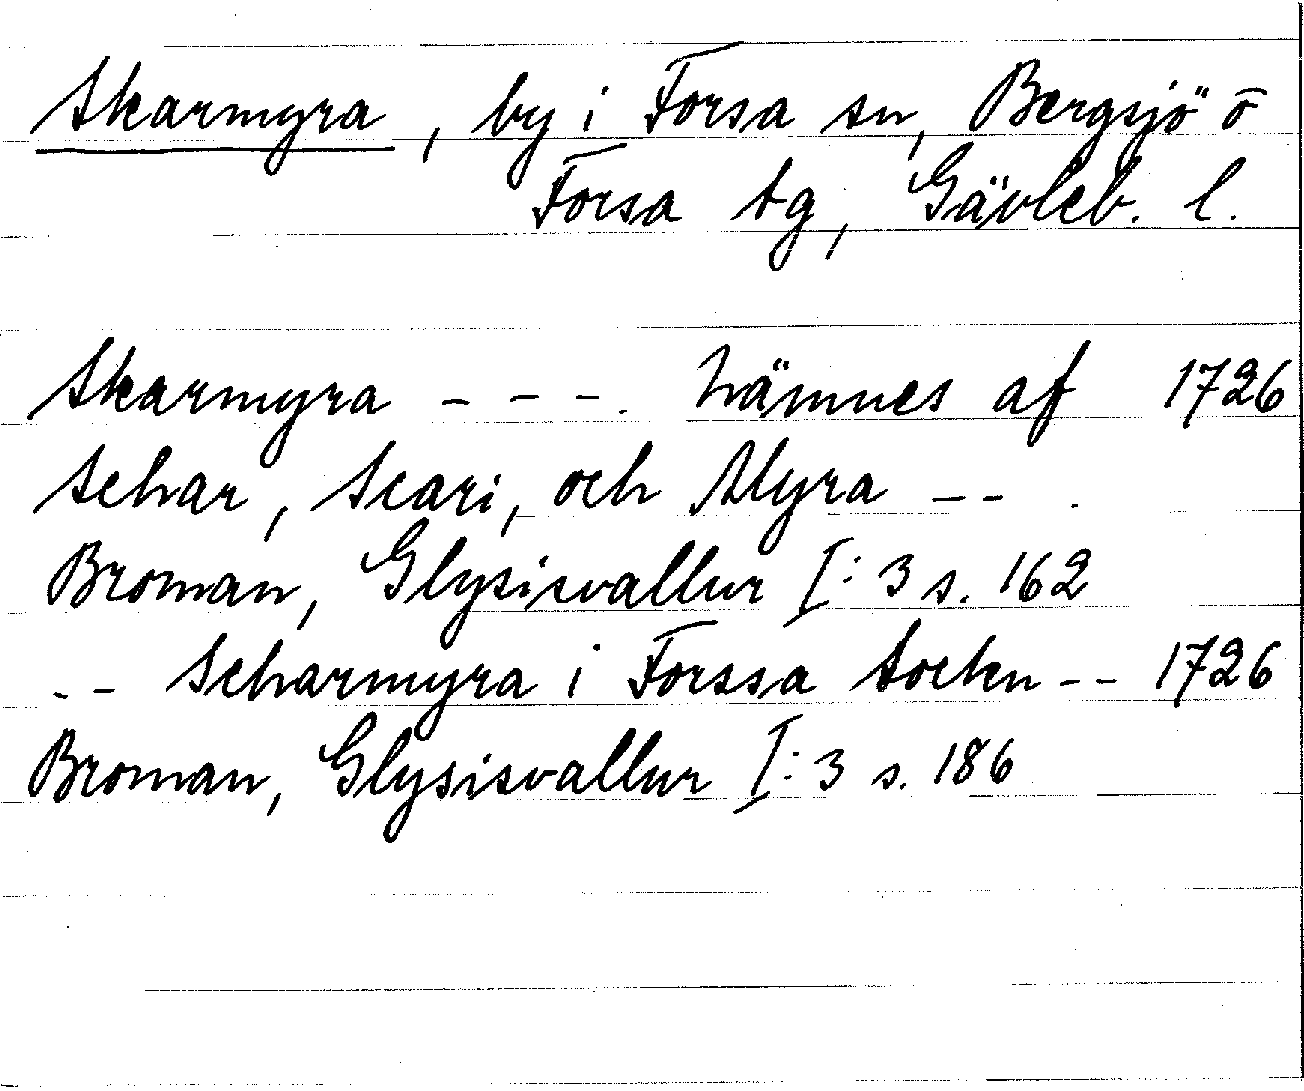 Skarmyra, by i Forsa sn, Bergsjö o
Forsa tg, Gävleb. l.
Skarmyra - - - . nämnes af 1726
Schar, Scari, och Myra -- .
Broman, Glysisvallur I:3 s. 162
-- Scharmyra i Forssa Sockn -- 1726
Broman, Glysisvallur I:3 s. 186